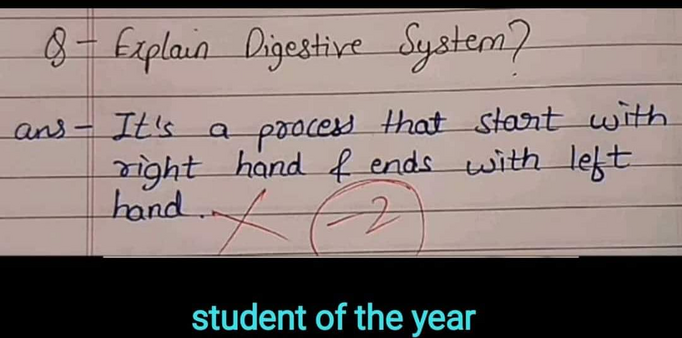 Q - Explain Digestive System?
ans - It's a process that start with
right hand & ends with left
hand.
-2
student of the year